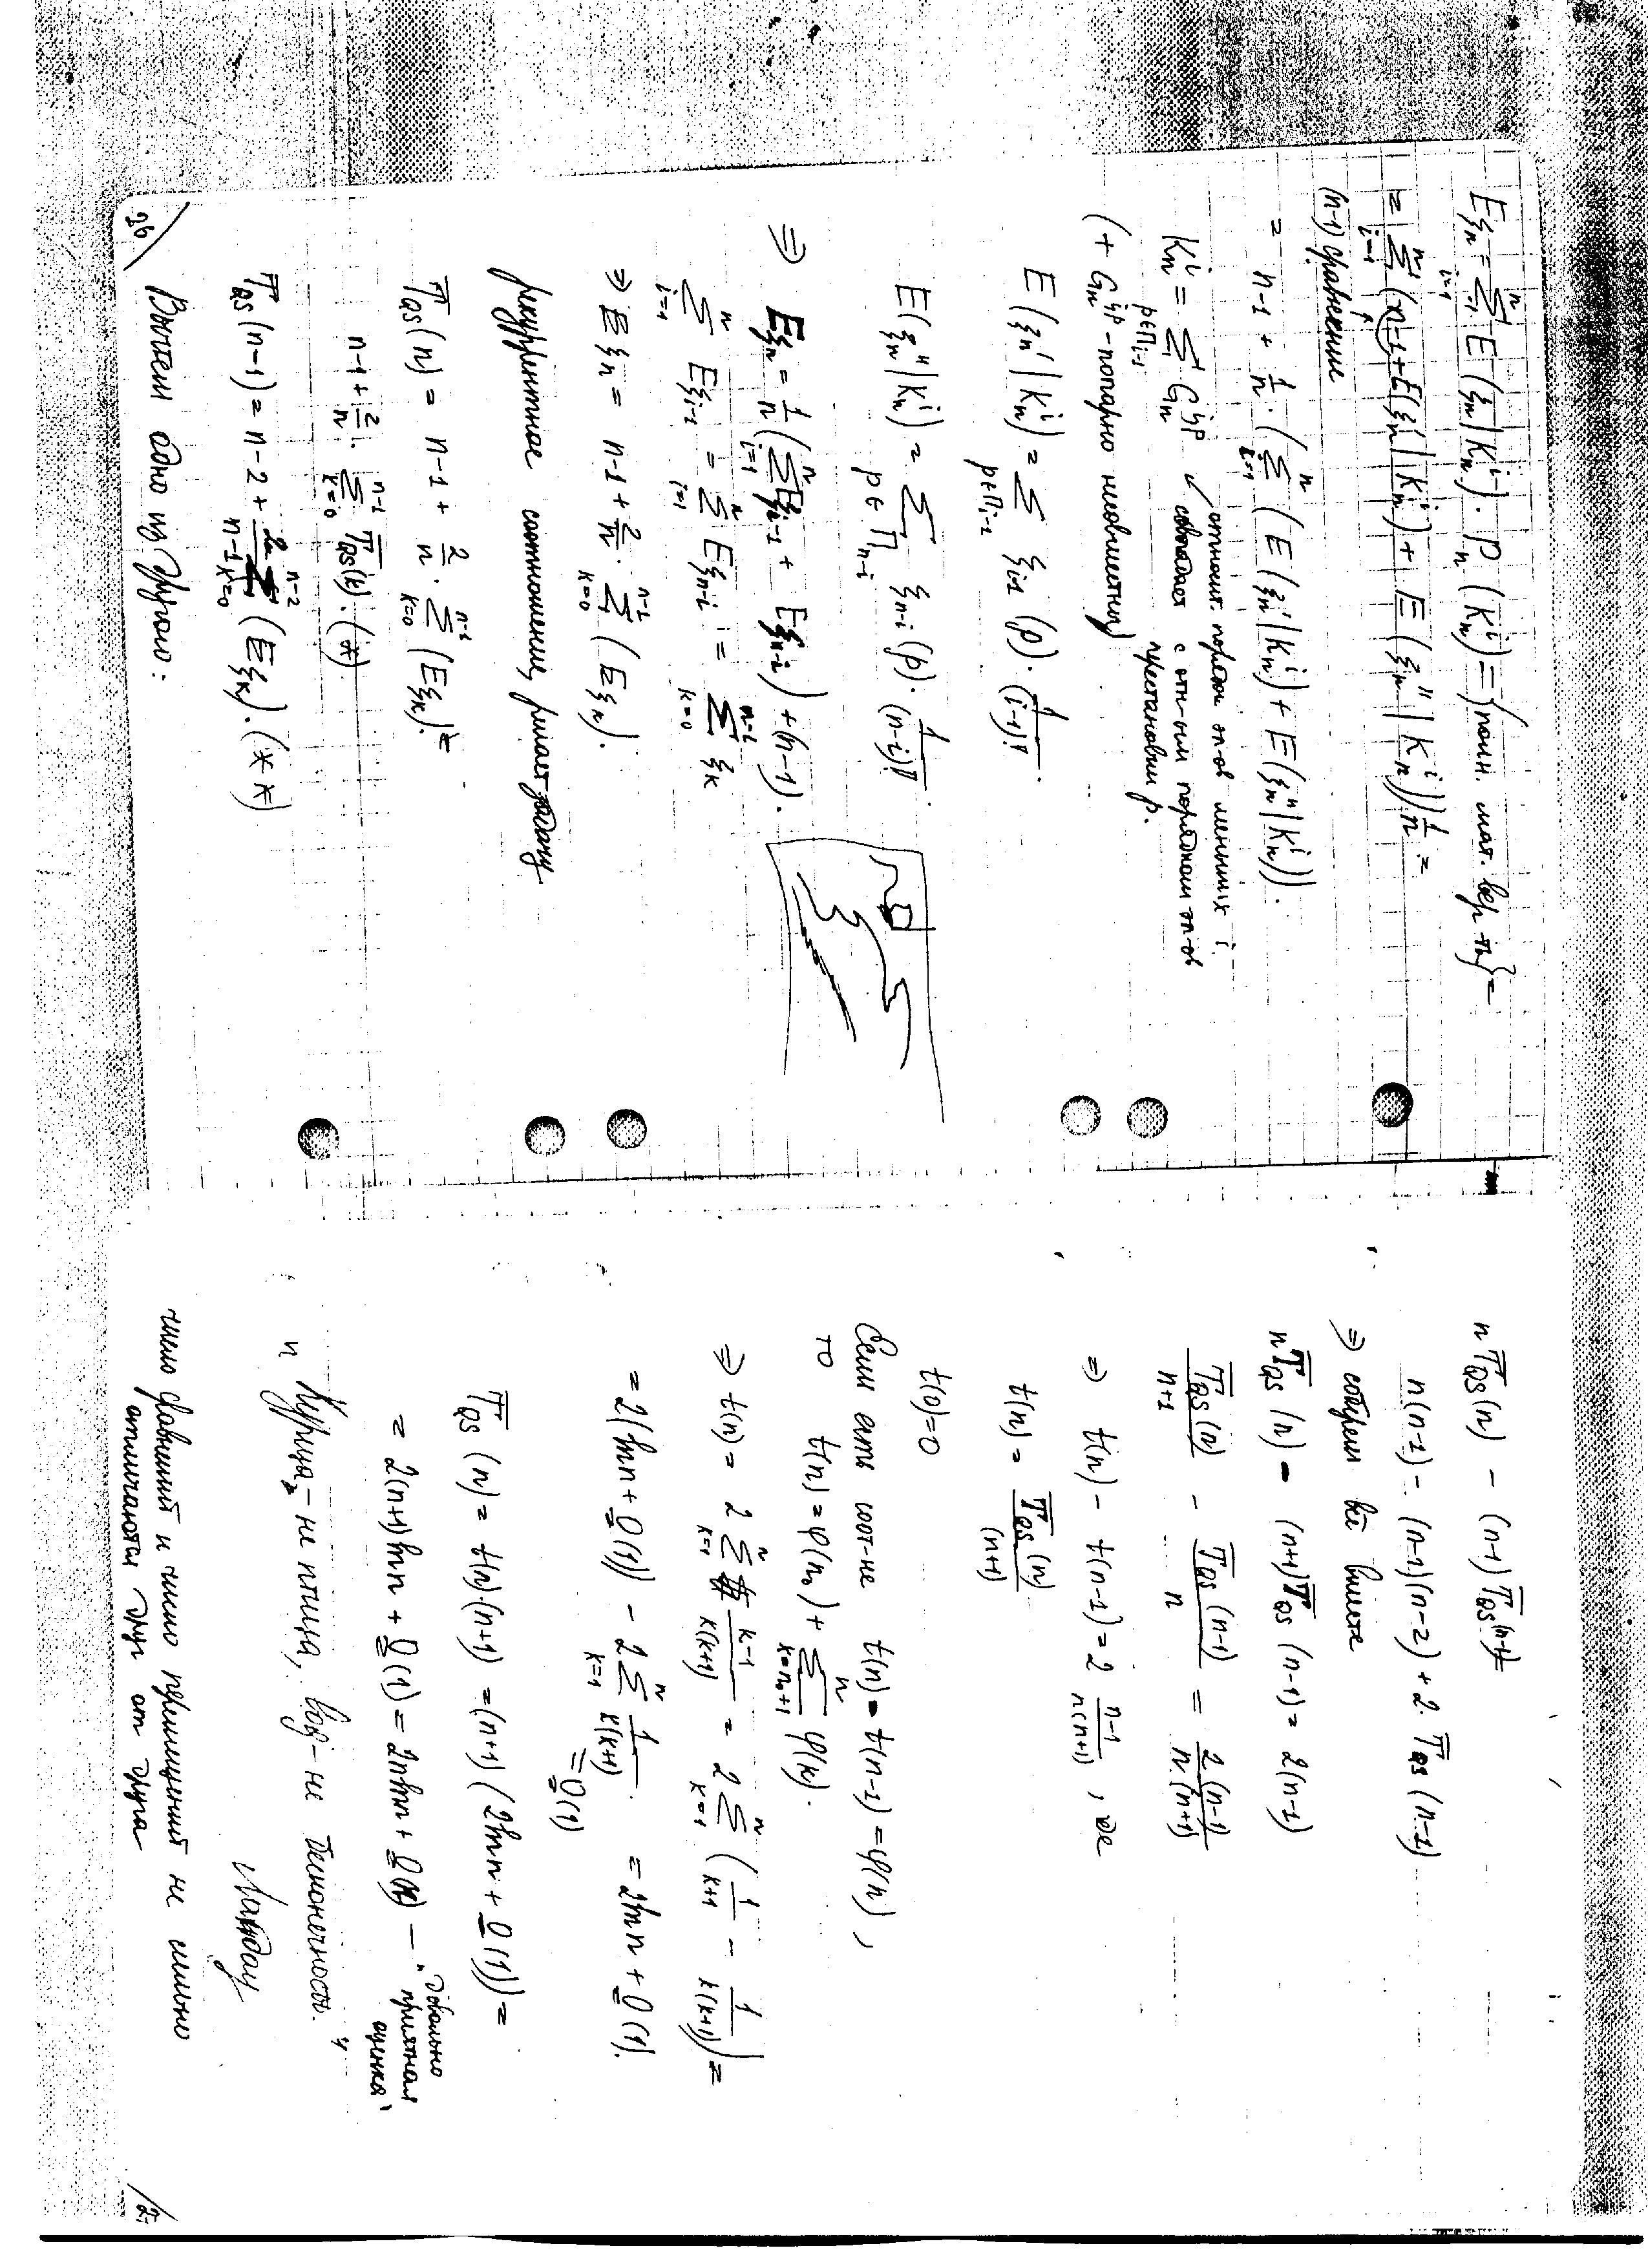 Eξₙ = Σᵢ₌₁ⁿ E(ξₙ | Kₙⁱ) · Pₙ(Kₙⁱ) = {полн. мат. вер-ти} =
= Σᵢ₌₁ⁿ (n-1 + E(ξₙ' | Kₙⁱ) + E(ξₙ'' | Kₙⁱ)) 1/n =
(n-1) сравнение
= n-1 + 1/n · (Σᵢ₌₁ⁿ (E(ξₙ' | Kₙⁱ) + E(ξₙ'' | Kₙⁱ))).
относит. порядок эл-ов меньших i
Kₙⁱ = Σ_{p∈Πᵢ₋₁} Gₙ^{i,p} совпадает с отн-ым порядком эл-ов
перестановки p.
(+ Gₙ^{i,p} - попарно несовместны)
E(ξₙ' | Kₙⁱ) = Σ_{p∈Πᵢ₋₁} ξᵢ₋₁(p) · 1/(i-1)! .
E(ξₙ'' | Kₙⁱ) = Σ_{p∈Πₙ₋ᵢ} ξₙ₋ᵢ(p) · 1/(n-i)! .
⇒ Eξₙ = 1/n (Σᵢ₌₁ⁿ Eξᵢ₋₁ + Eξₙ₋ᵢ) + (n-1).
Σᵢ₌₁ⁿ Eξᵢ₋₁ = Σᵢ₌₁ⁿ Eξₙ₋ᵢ = Σₖ₌₀ⁿ⁻¹ ξₖ
⇒ Eξₙ = n-1 + 2/n · Σₖ₌₀ⁿ⁻¹ (Eξₖ).
рекуррентное соотношение, решает задачу
T̅_QS(n) = n-1 + 2/n · Σₖ₌₀ⁿ⁻¹ (Eξₖ) =
n-1 + 2/n · Σₖ₌₀ⁿ⁻¹ T̅_QS(k). (*)
T̅_QS(n-1) = n-2 + 2/(n-1) Σₖ₌₀ⁿ⁻² (Eξₖ). (**)
26/ Вычтем одно из другого:
n T̅_QS(n) - (n-1) T̅_QS(n-1) =
n(n-1) - (n-1)(n-2) + 2 · T̅_QS(n-1)
⇒ соберем всё вместе
n T̅_QS(n) - (n+1) T̅_QS(n-1) = 2(n-1)
T̅_QS(n)/(n+1) - T̅_QS(n-1)/n = 2(n-1)/(n·(n+1))
⇒ t(n) - t(n-1) = 2 (n-1)/(n(n+1)), где
t(n) = T̅_QS(n)/(n+1)
t(0) = 0
Если есть соот-не t(n) - t(n-1) = φ(n),
то t(n) = φ(n₀) + Σₖ₌ₙ₀₊₁ⁿ φ(k).
⇒ t(n) = 2 Σₖ₌₁ⁿ (k-1)/(k(k+1)) = 2 Σₖ₌₁ⁿ (1/(k+1) - 1/(k(k+1))) =
= 2(ln n + O(1)) - 2 Σₖ₌₁ⁿ 1/(k(k+1)) = 2 ln n + O(1).
= O(1)
T̅_QS(n) = t(n)·(n+1) = (n+1)(2 ln n + O(1)) =
= 2(n+1) ln n + O(1) = 2n ln n + O(n) — "довольно
приятная
оценка"
"Курица - не птица, log - не бесконечность."
Ландау
число сравнений и число перемещений не сильно
отличаются друг от друга
/27